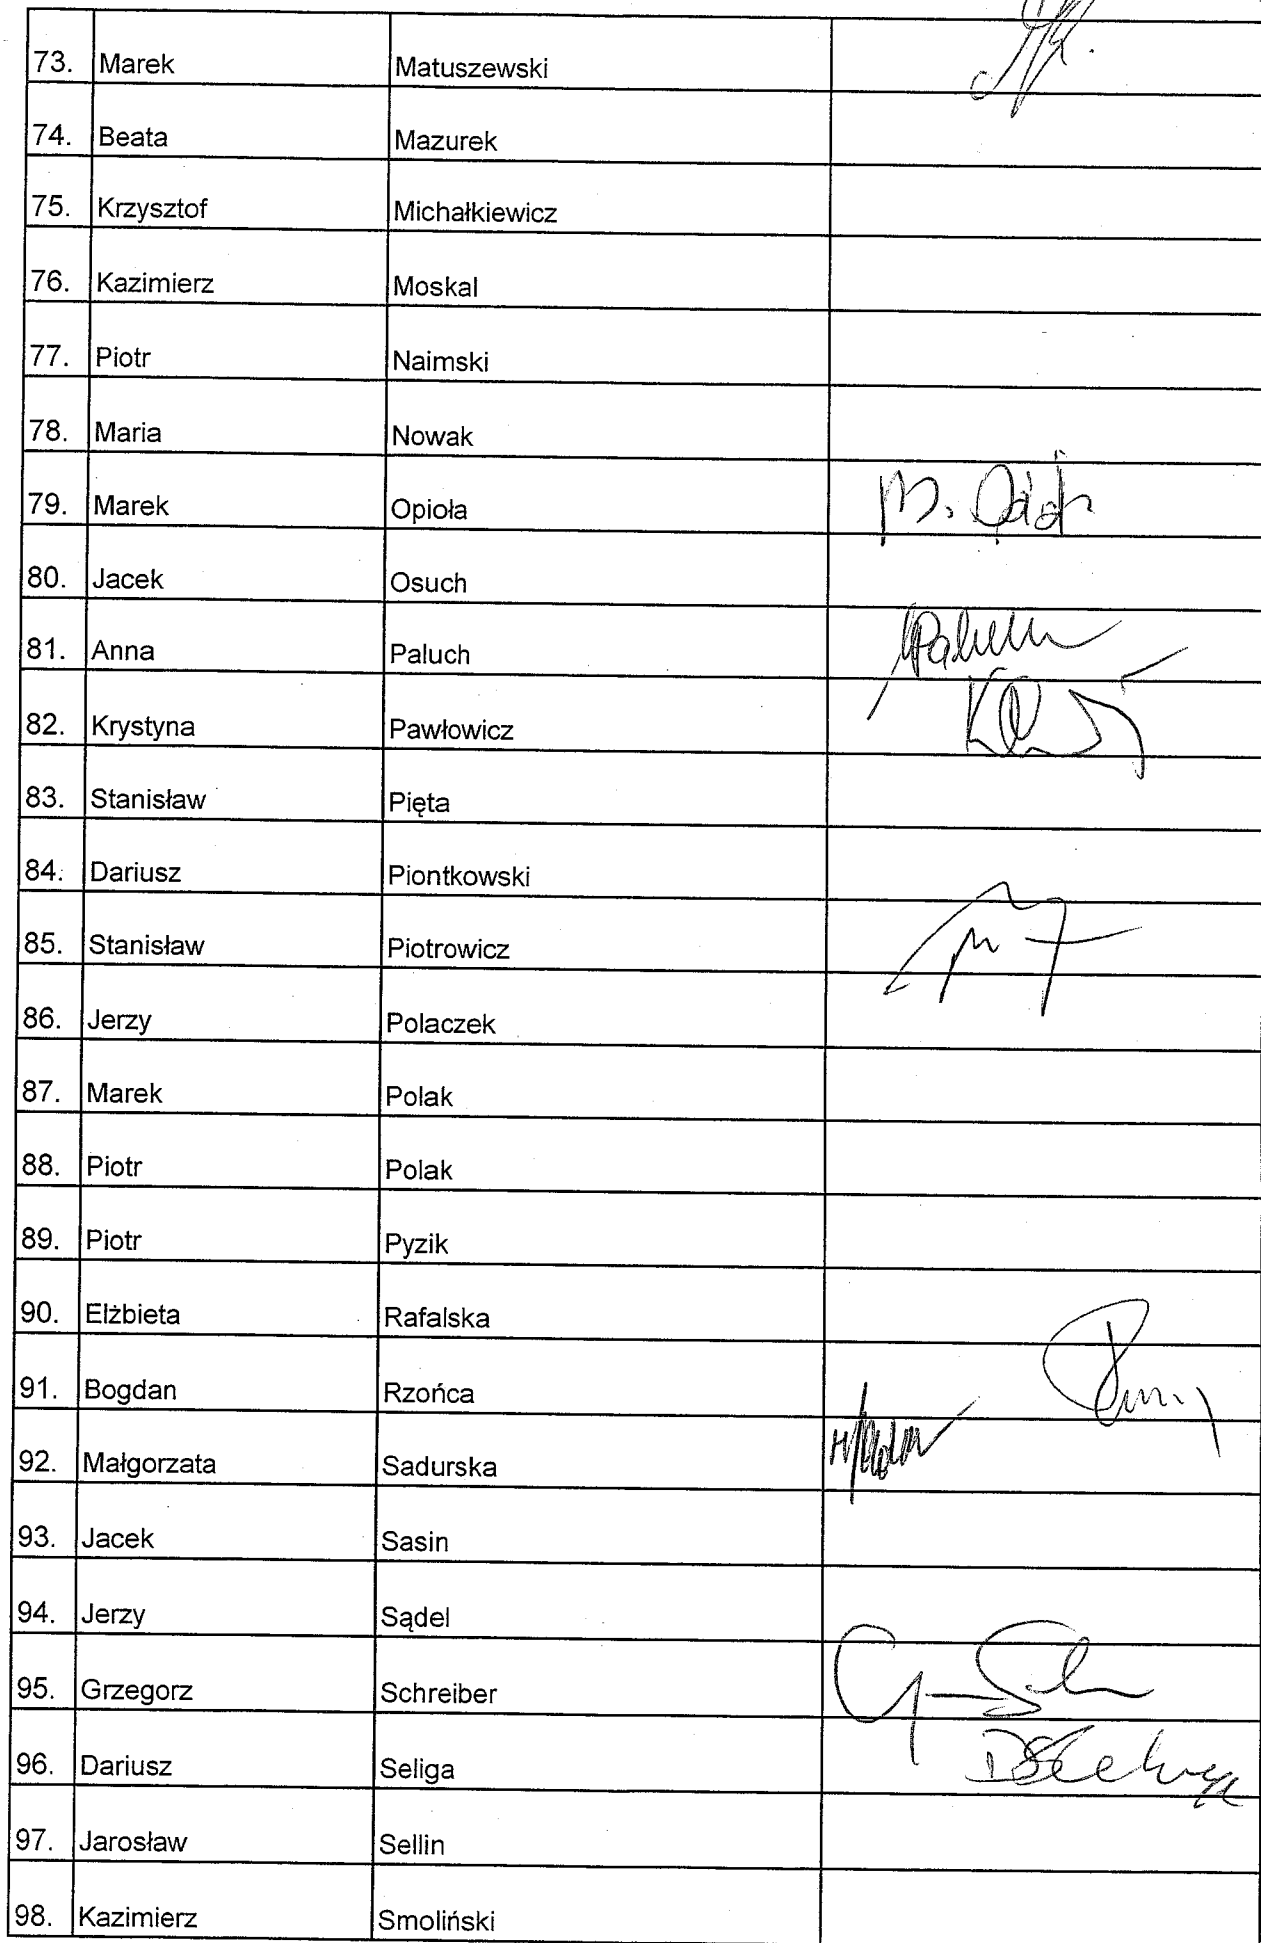 73. Marek Matuszewski
74. Beata Mazurek
75. Krzysztof Michałkiewicz
76. Kazimierz Moskal
77. Piotr Naimski
78. Maria Nowak
79. Marek Opioła
80. Jacek Osuch
81. Anna Paluch
82. Krystyna Pawłowicz
83. Stanisław Pięta
84. Dariusz Piontkowski
85. Stanisław Piotrowicz
86. Jerzy Polaczek
87. Marek Polak
88. Piotr Polak
89. Piotr Pyzik
90. Elżbieta Rafalska
91. Bogdan Rzońca
92. Małgorzata Sadurska
93. Jacek Sasin
94. Jerzy Sądel
95. Grzegorz Schreiber
96. Dariusz Seliga
97. Jarosław Sellin
98. Kazimierz Smoliński